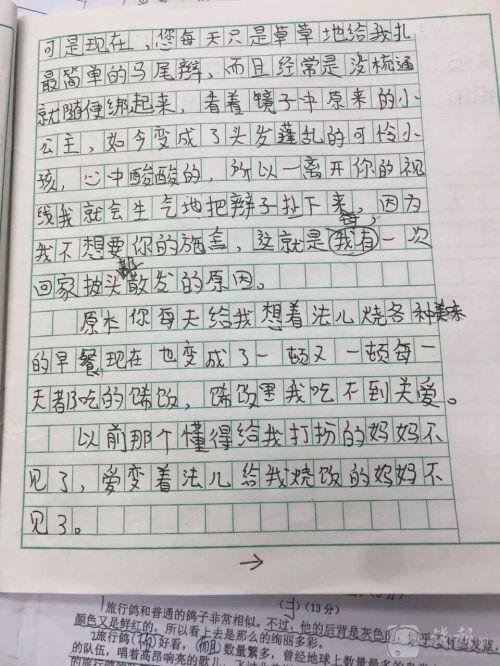 可是现在，您每天只是草草地给我扎
最简单的马尾辫，而且经常是没梳通
就随便绑起来，看着镜子中原来的小
公主，如今变成了头发蓬乱的可怜小
孩，心中酸酸的，所以一离开你的视
线我就会生气地把辫子扯下来，因为
我不想要你的施舍，这就是我有一次
回家披头散发的原因。
原本你每天给我想着法儿烧各种美味
的早餐现在也变成了一顿又一顿每一
天都吃的馊饭，馊饭里我吃不到关爱。
以前那个懂得给我打扮的妈妈不
见了，爱变着法儿给我烧饭的妈妈不
见了。
→
(二) (13分)
旅行鸽和普通的鸽子非常相似。不过，他的后背是灰色的，
颜色又是鲜红的，所以看上去是那么的绚丽多彩。
2旅行鸽 好看， 数量繁多，曾经地球上数量最多的鸟
的队伍，唱着高昂响亮的歌儿，